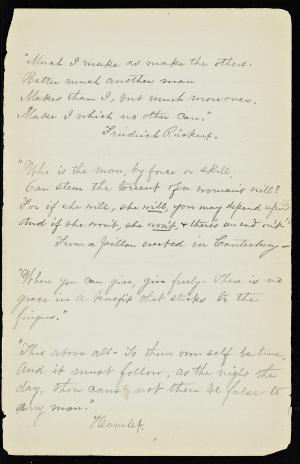 "Much I make as make the others.
Better much another man
Makes than I, but much moreover,
Make I which no other can."
Friedrich Rückert.
"Who is the man, by force or skill,
Can stem the torrent of a woman's will?
For if she will, she will, you may depend upon't
And if she won't, she won't, & there's an end on't."
From a pillar erected in Canterbury—
"Where you can give, give freely. There is no
grace in a benefit that sticks to the
fingers."
"This above all- To thine own self be true,
And it must follow, as the night the
day, thou canst not then be false to
any man."
Hamlet.